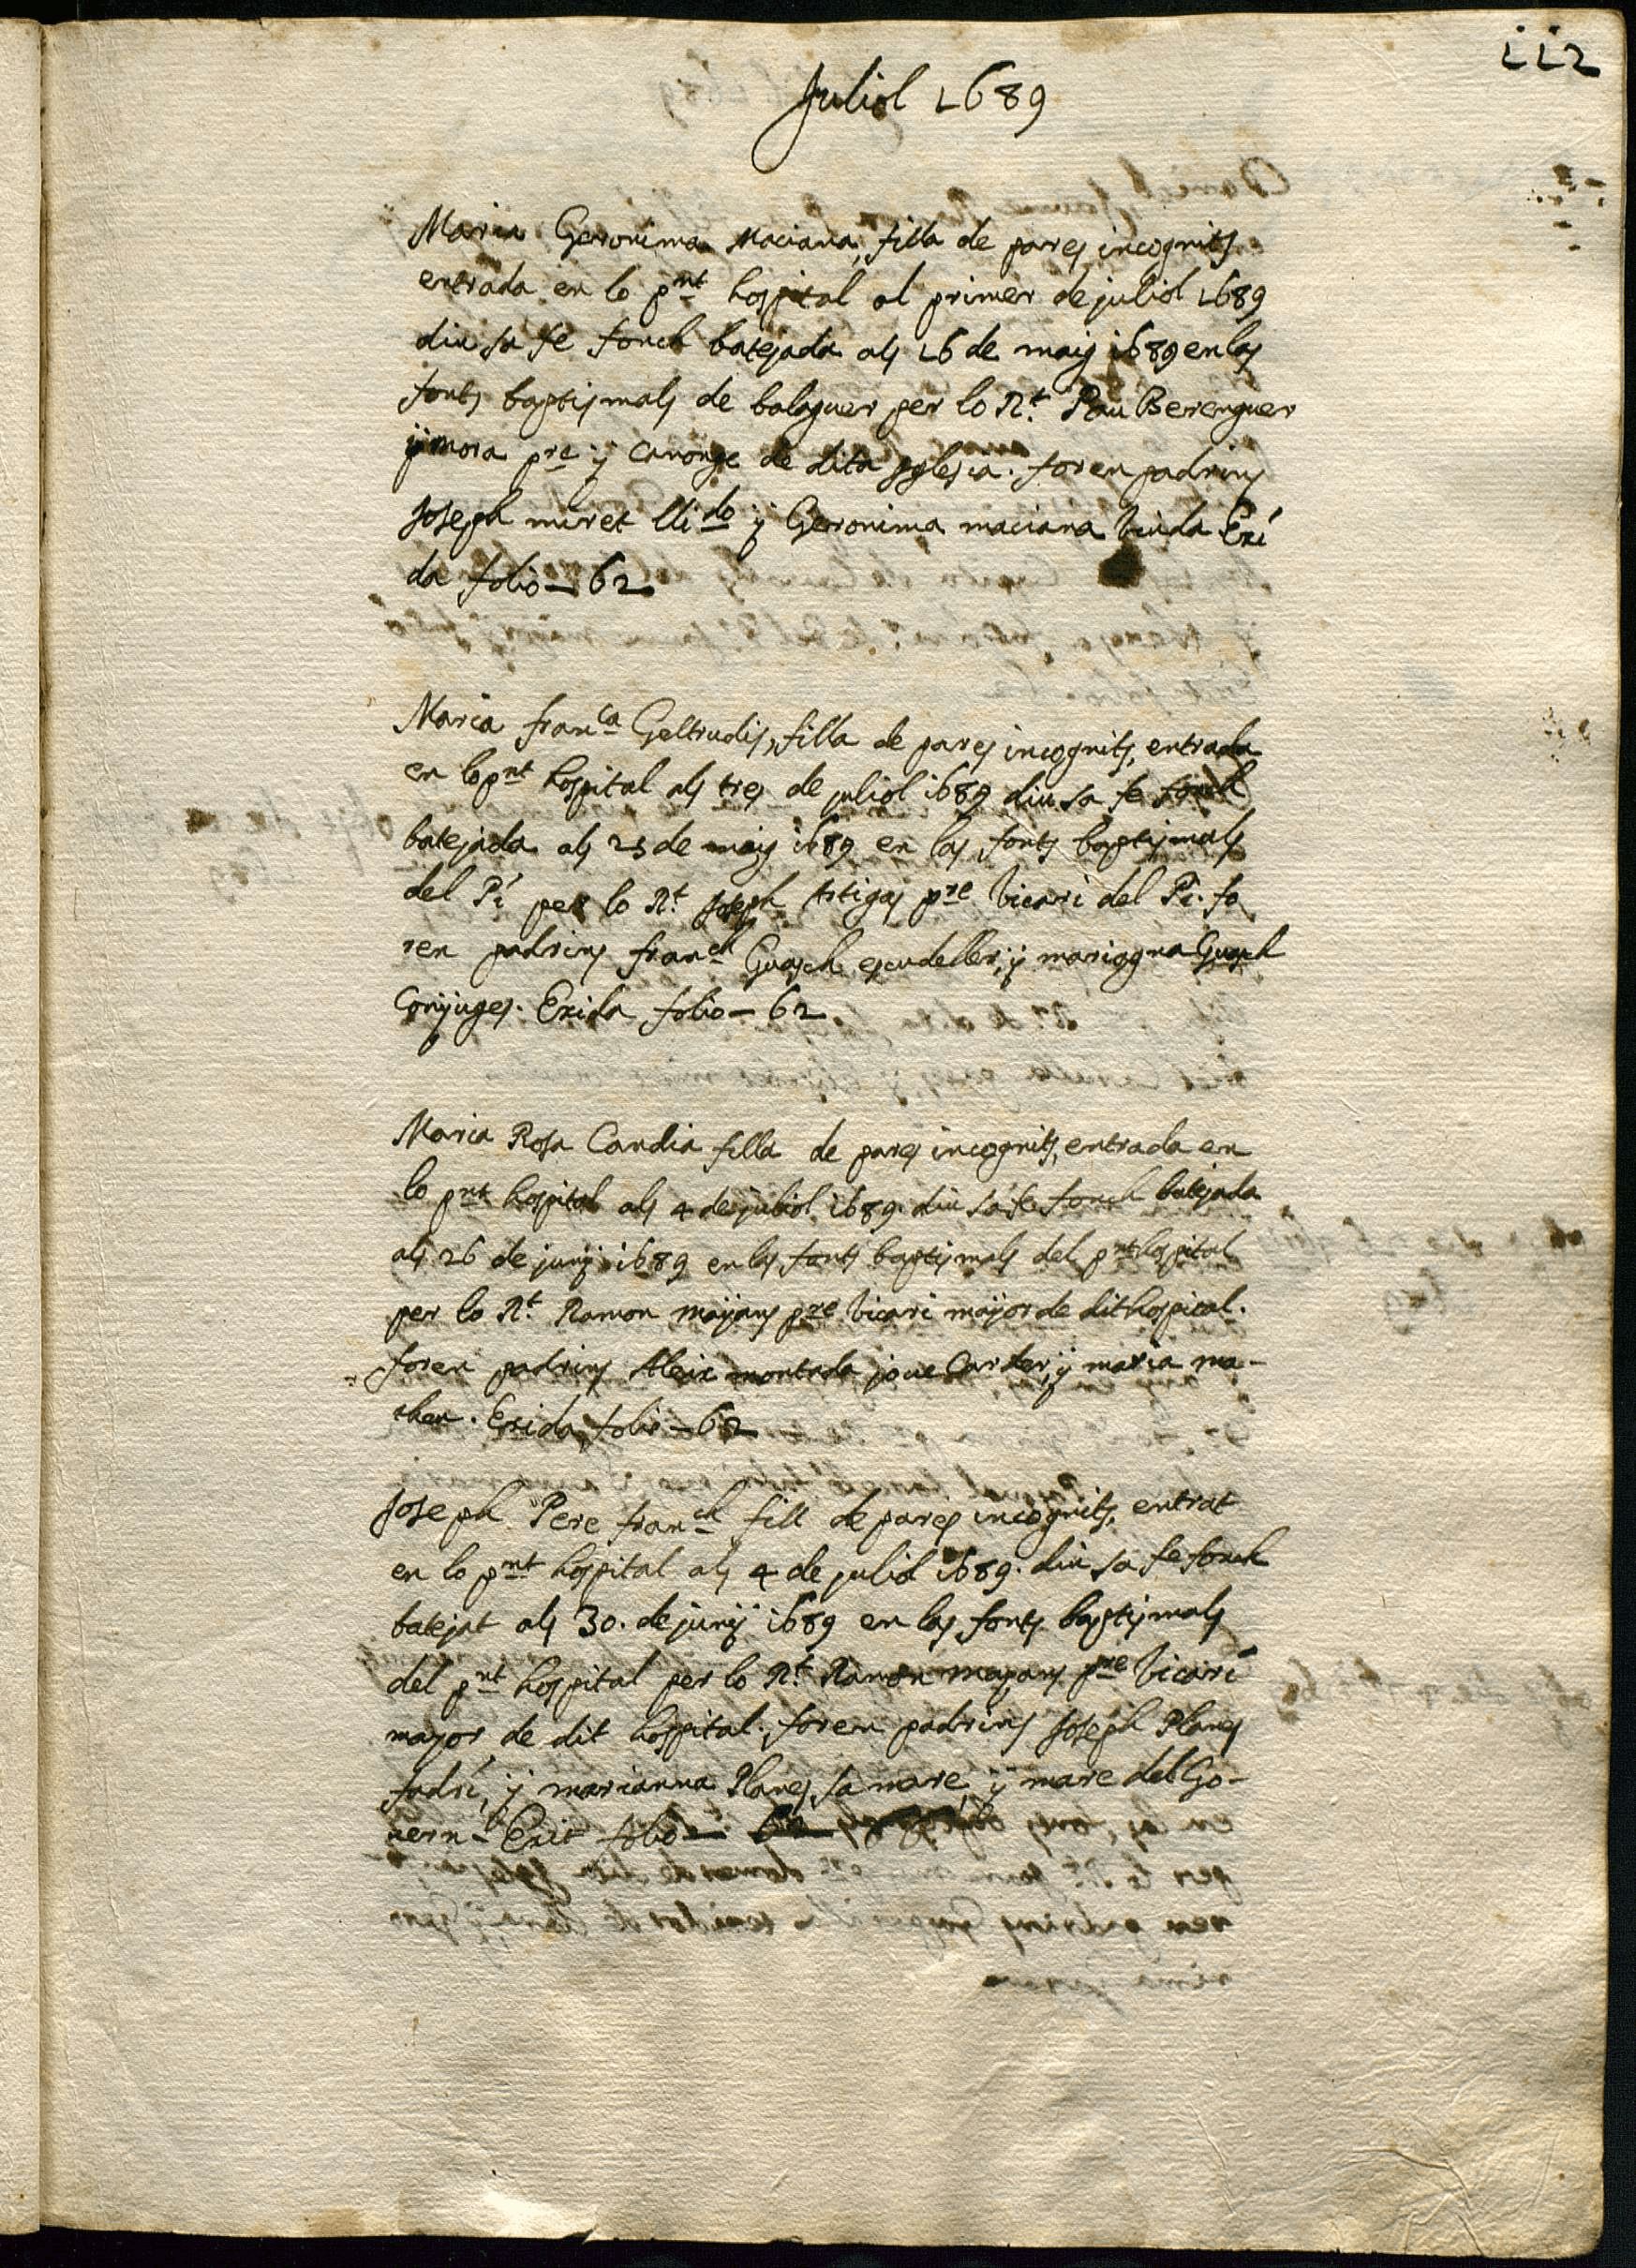 112
Juliol 1689
Maria Geronima Maciana, filla de pares incognits
entrada en lo pnt hospital al primer de juliol 1689
diu sa fe fonch batejada als 16 de maig 1689 en las
fonts baptismals de balaguer per lo Rt. Pau Berenguer
y mora pre y Canonge de dita Iglesia. foren padrins
Joseph miret llido y Geronima maciana viuda Exi
da folio - 62
Maria franca Geltrudis, filla de pares incognits, entrada
en lo pnt hospital als tres de juliol 1689 diu sa fe fonch
batejada als 25 de maig 1689 en las fonts baptismals
del Pi per lo Rt. Joseph Artigas pre vicari del Pi. fo
ren padrins franch Guasch escudeller, y mariagna Guasch
Conjuges. Exida folio - 62
Maria Rosa Candia filla de pares incognits, entrada en
lo pnt hospital als 4 de juliol 1689. diu sa fe fonch batejada
als 26 de juny 1689 en las fonts baptismals del pnt hospital
per lo Rt. Ramon mayans pre vicari major de dit hospital.
foren padrins Aleix montada jove Carder, y maria ma-
theu. Exida folio - 62
Joseph Pere franch fill de pares incognits, entrat
en lo pnt hospital als 4 de juliol 1689. diu sa fe fonch
batejat als 30. de juny 1689 en las fonts baptismals
del pnt hospital per lo Rt. Ramon mayans pre vicari
mayor de dit hospital. foren padrins Joseph Planes
fadri, y marianna Planes, sa mare, y mare del Go-
vern - Exit folio - 62